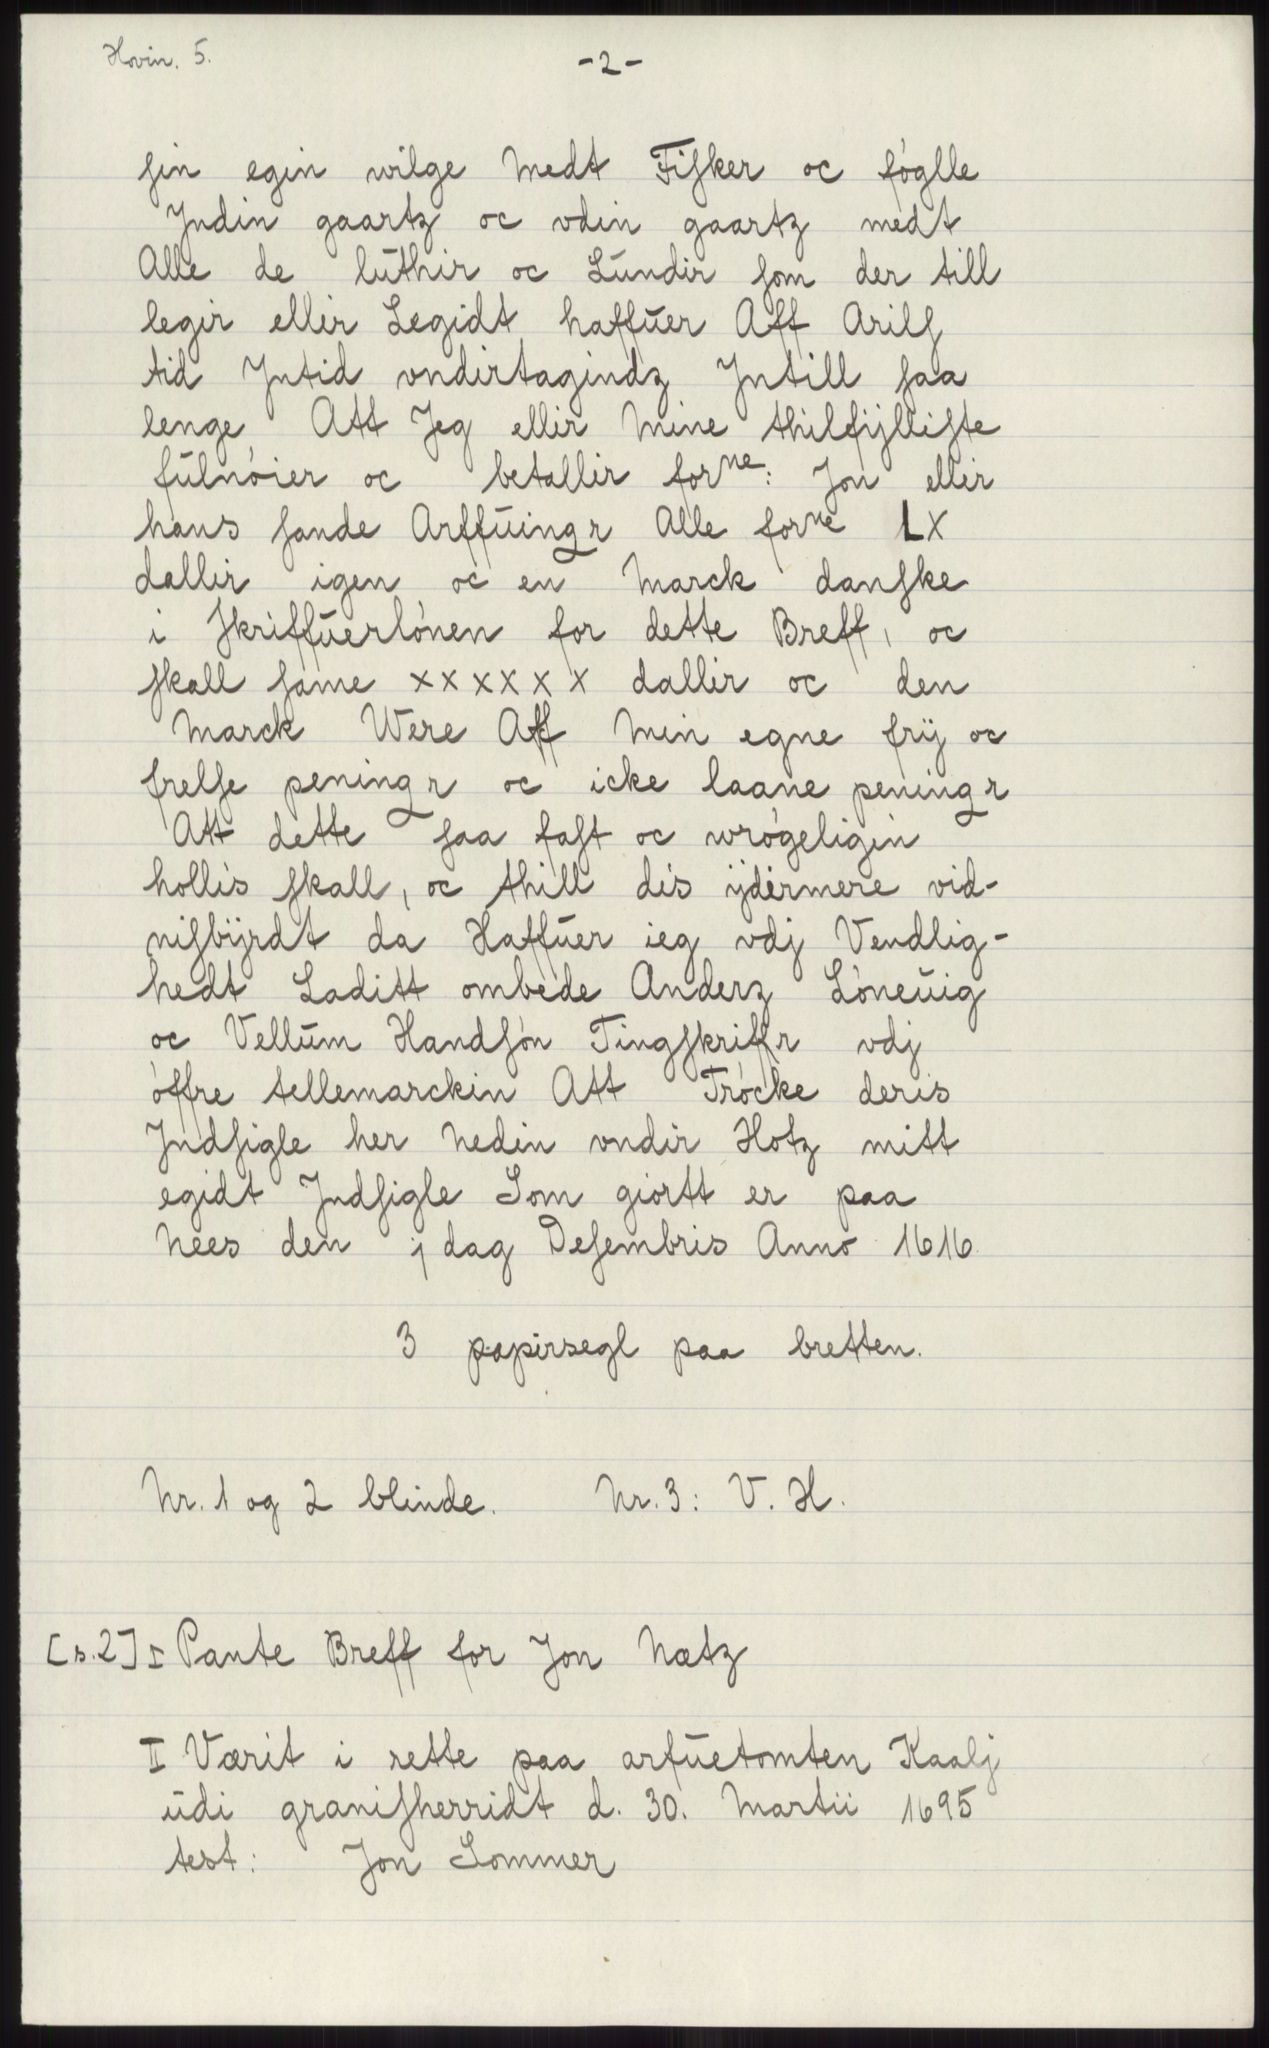 Hovin. 5.
-2-
ſin egin wilge Medt Fiſker oc føglle
Jndin gaartz oc vdin gaartz medt
Alle de lùthir oc Lùndir ſom der till
legir ellir Legidt haffùer Aff Arilſ
tid Jntid vndirtagindz Jntill ſaa
lenge Att Jeg ellir Mine thilfijlliſte
fùlnøier oc betallir forne: Jon ellir
hans ſande Arffùingr Alle forne LX
dallir igen oc en Marck danſke
i ſkriffùerlønen for dette Breff, oc
ſkall ſame xxxxxx dallir oc den
Marck Were Aff Min egne frij oc
frelſe peningr oc icke laane peningr
Att dette ſaa faſt oc wrøgeligin
hollis ſkall, oc thill dis ijdermere vid-
niſbijrdt da Haffùer ieg vdj Vendlig-
hedt Laditt ombede Anderz Lønevig
oc Vellùm Handſøn Tingſkriffr vdj
øffre tellemarckin Att Trøcke deris
Jndſigle her Nedin vndir Hotz mitt
egidt Jndſigle Som giortt er paa
Nees den j dag Deſembris Anno 1616
3 papirsegl paa bretten.
Nr. 1 og 2 blinde. Nr. 3: V. H.
[s.2] I Pante Breff for Jon Nætz
II Værit i rette paa arfùetomten Kaalj
ùdi graniſherridt d. 30. Martii 1695
test: Jon Sommer